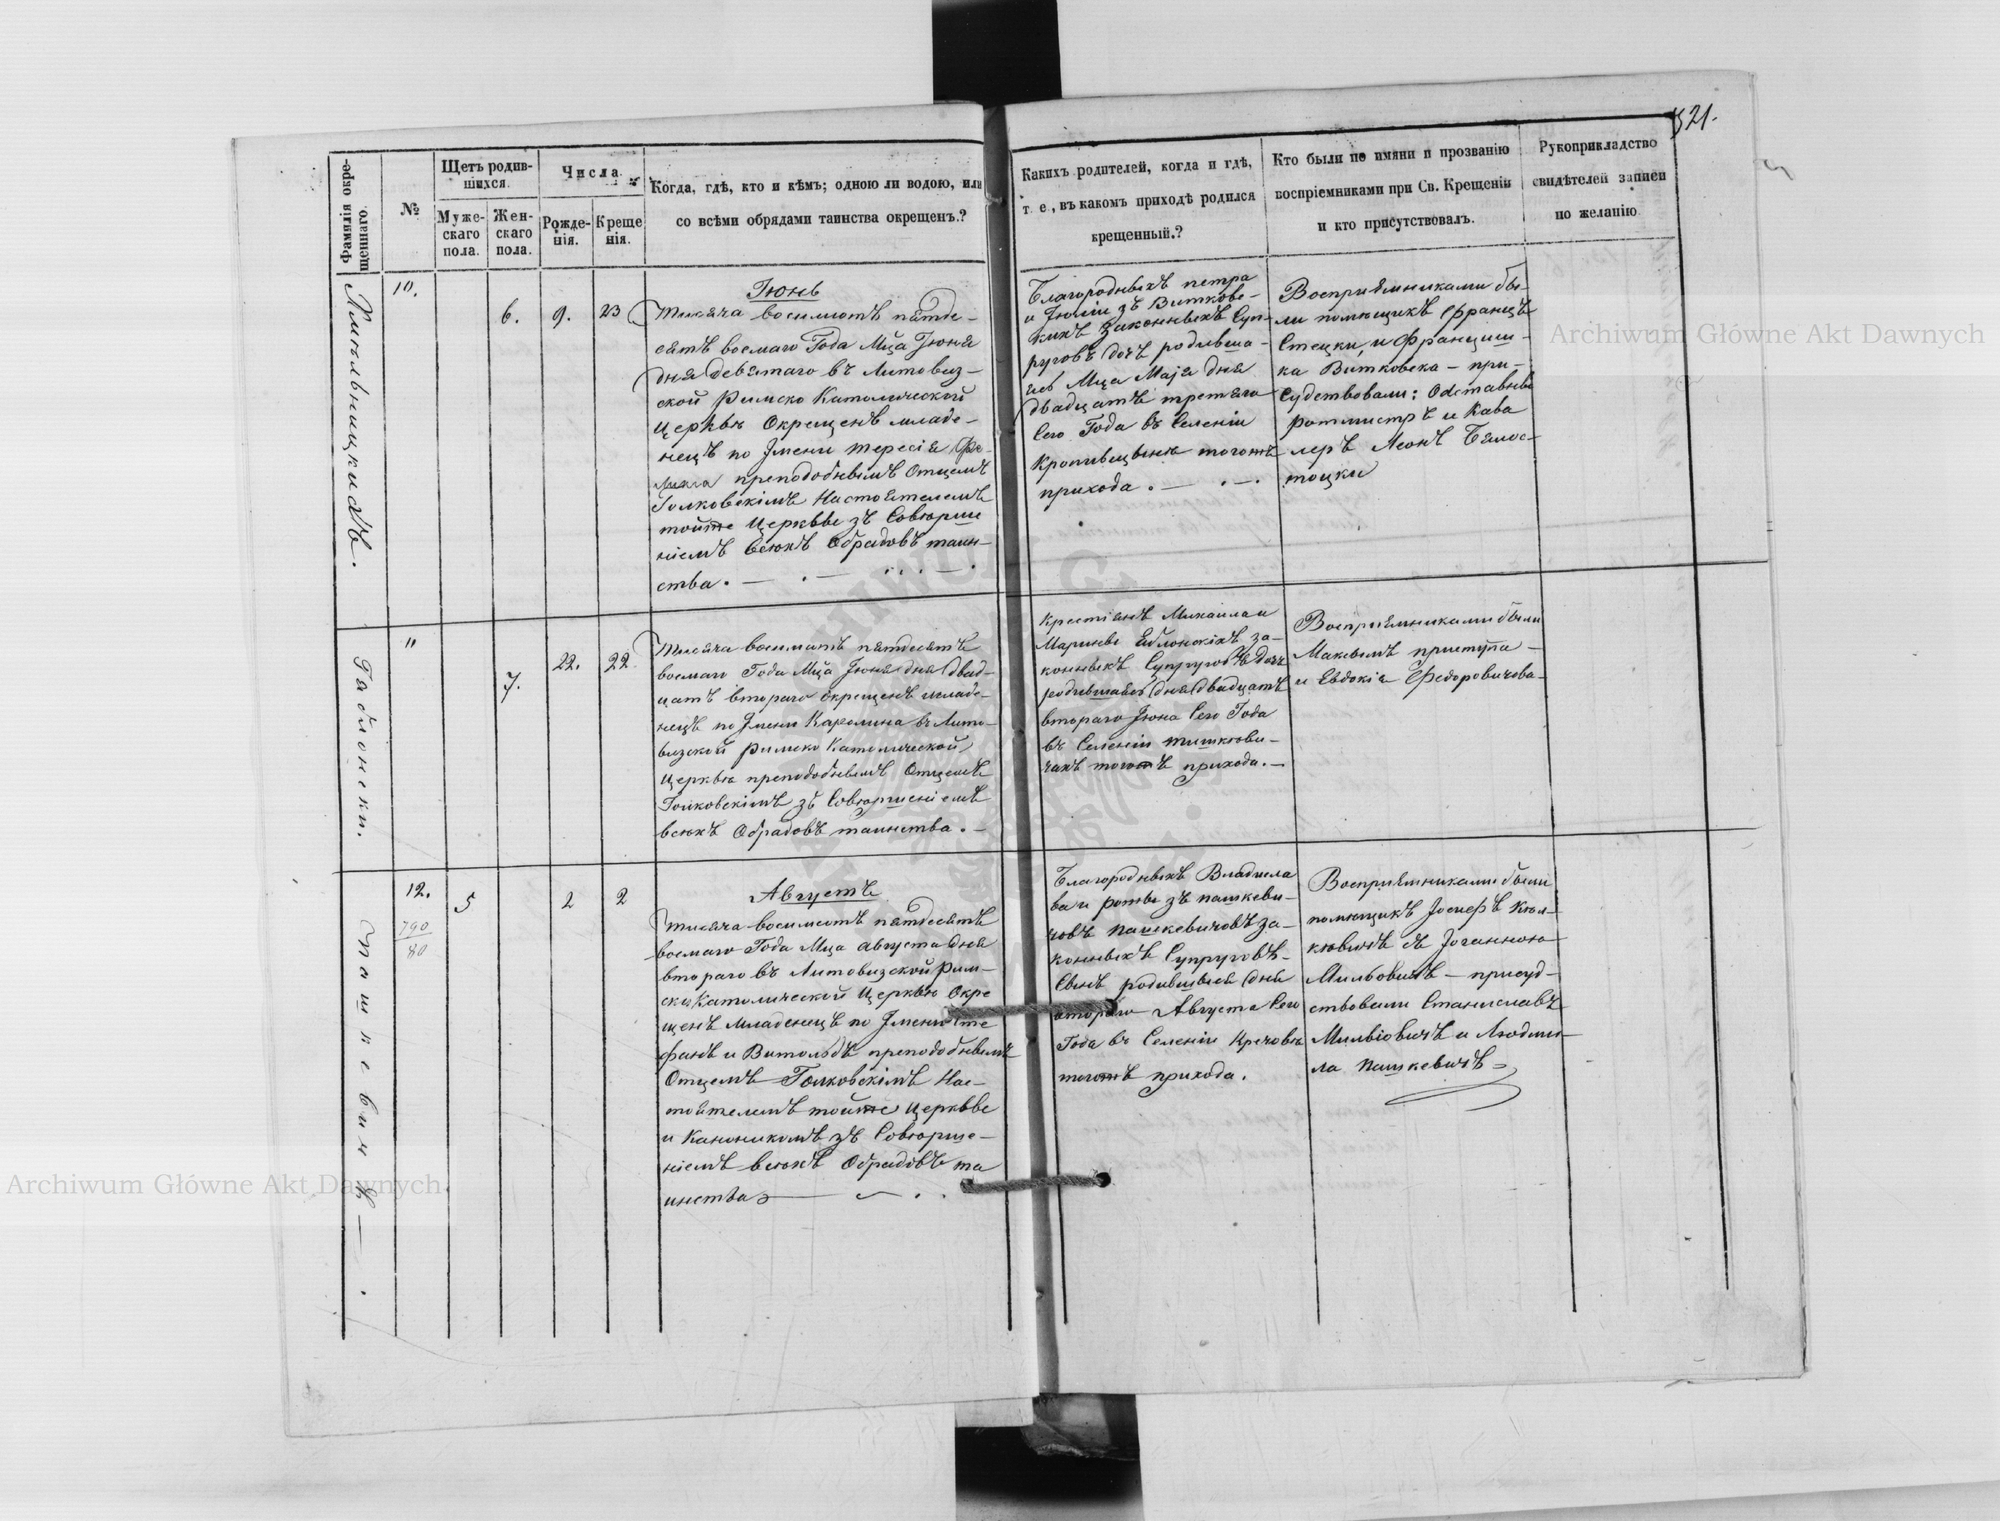 521.
Фамилія окре-
щеннаго.
№
Щетъ родив-
шихся.
Муже-
скаго
пола.
Жен-
скаго
пола.
Числа
Рожде-
нія.
Креще
нія.
Когда, гдѣ, кто и кѣмъ; одною ли водою, или
со всѣми обрядами таинства окрещенъ.?
Какихъ родителей, когда и гдѣ,
т. е., въ какомъ приходѣ родился
крещенный.?
Кто были по имяни и прозванію
воспріемниками при Св. Крещеніи
и кто присутствовалъ.
Рукоприкладство
свидѣтелей записи
по желанію.
10.
6.
9.
23
Іюнь
Тисяча восимютъ пятде-
сятъ восмаго Года Мца Іюня
дня девятаго въ Литовиз-
ской Римско Католической
Церквѣ Окрещенъ младе-
нецъ по Імени Тересія Фе-
преподобнымъ Отцемъ
Голковскімъ Настоятелемъ
тойже Церкввы зъ Совюрше
ніемъ Всюхъ Обрядовъ таин-
ства. — . — . . . — .
Благородныхъ петра
и Юліи зъ Витковс-
кихъ Законныхъ Суп-
руговъ дочь родивша-
яся Мца Маія дня
двадцать третяго
Сего Года въ Селеніи
тогожъ
прихода. — . — .
Восприямниками бы-
ли помющикъ Францъ
Стецки, и Францши-
ка Витковска — при-
Судствовали: Отставны
ротмистръ и Кава
леръ Леонъ Бялос-
тоцки
Яблонски.
11
7.
22.
22
Тисяча восимютъ пятдесятъ
восмаго Года Мца Іюня дня двад-
цатъ втораго окрещенъ младе-
нецъ по Імени Каролина въ Лито-
визской римско Католической
Церквѣ преподобнымъ Отцемъ
Голковскімъ зъ Совюршеніемъ
всюхъ Обрядовъ таинства. —
Крестіянъ Михаила и
Марыны Яблонскіхъ за-
конныхъ Супруговъ дочь
родившаяся дня двадцатъ
втораго Іюна Сего Года
въ Селеніи тишкови-
чахъ тогожъ прихода. —
Восприямниками были
Максымъ приступа —
и Евдокія Федоровичова —
Пашкевичъ — .
12.
790
80
5
2
2
Августъ
Тисяча восимютъ пятдесятъ
восмаго Года Мца Августа дня
втораго въ Литовизской Рим-
ско Католической Церквѣ Окре
щенъ Младенецъ по Імени Сте
фанъ и Витольдъ преподобнымъ
Отцемъ Голковскімъ Нас-
тоятелемъ тойже Церкввы
и Каноникомъ зъ Совюрше-
ніемъ всюхъ Обрядовъ та
инства
Благородныхъ Владисла
ва и розы зъ пашкеви-
човъ пашкевичовъ за-
конныхъ Супруговъ-
Сынъ родившыся дня
втораго Августа Сего
Года въ Селеніи Кречовѣ
тогожъ прихода.
Восприямниками были
помющикъ Іосифъ
съ Іоанною
— присуд-
ствовали Станиславъ
и Людми-
ла пашкевичъ
Archiwum Główne Akt Dawnych
Archiwum Główne Akt Dawnych